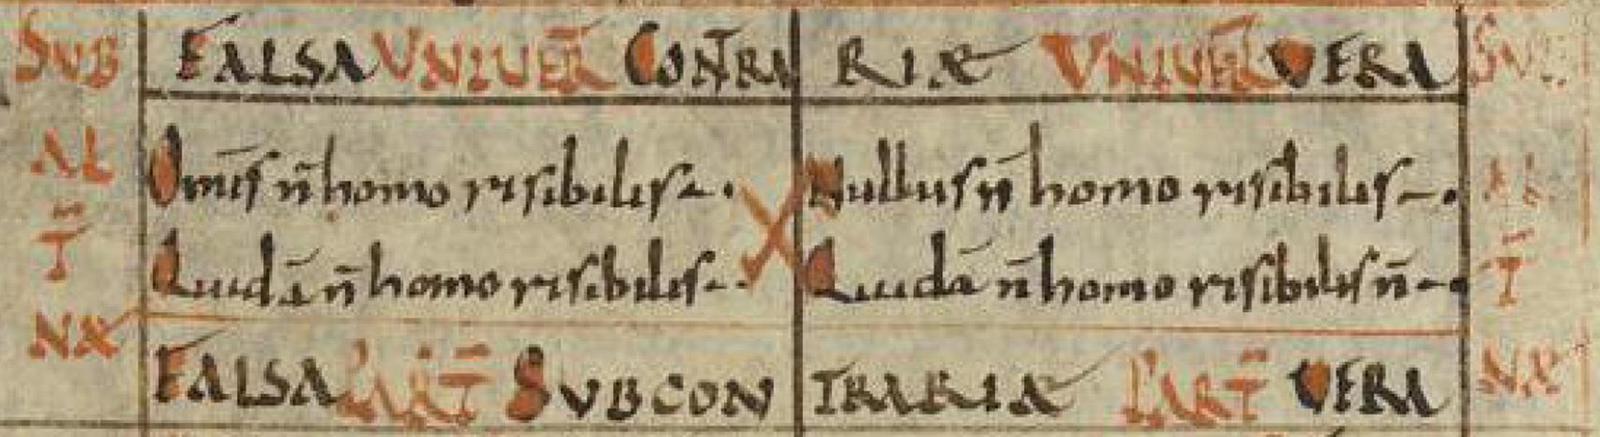 SUB FALSA UNIUER̄ CONTRARIÆ UNIUER̄ UERA SU
AL Om̄is n̄ homo risibilis Nullus n̄ homo risibilis AL
T̄ Quidā n̄ homo risibilis Quidā n̄ homo risibilis n̄ T̄
NÆ FALSA PART̄ SUBCONTRARIÆ PART̄ UERA NÆ